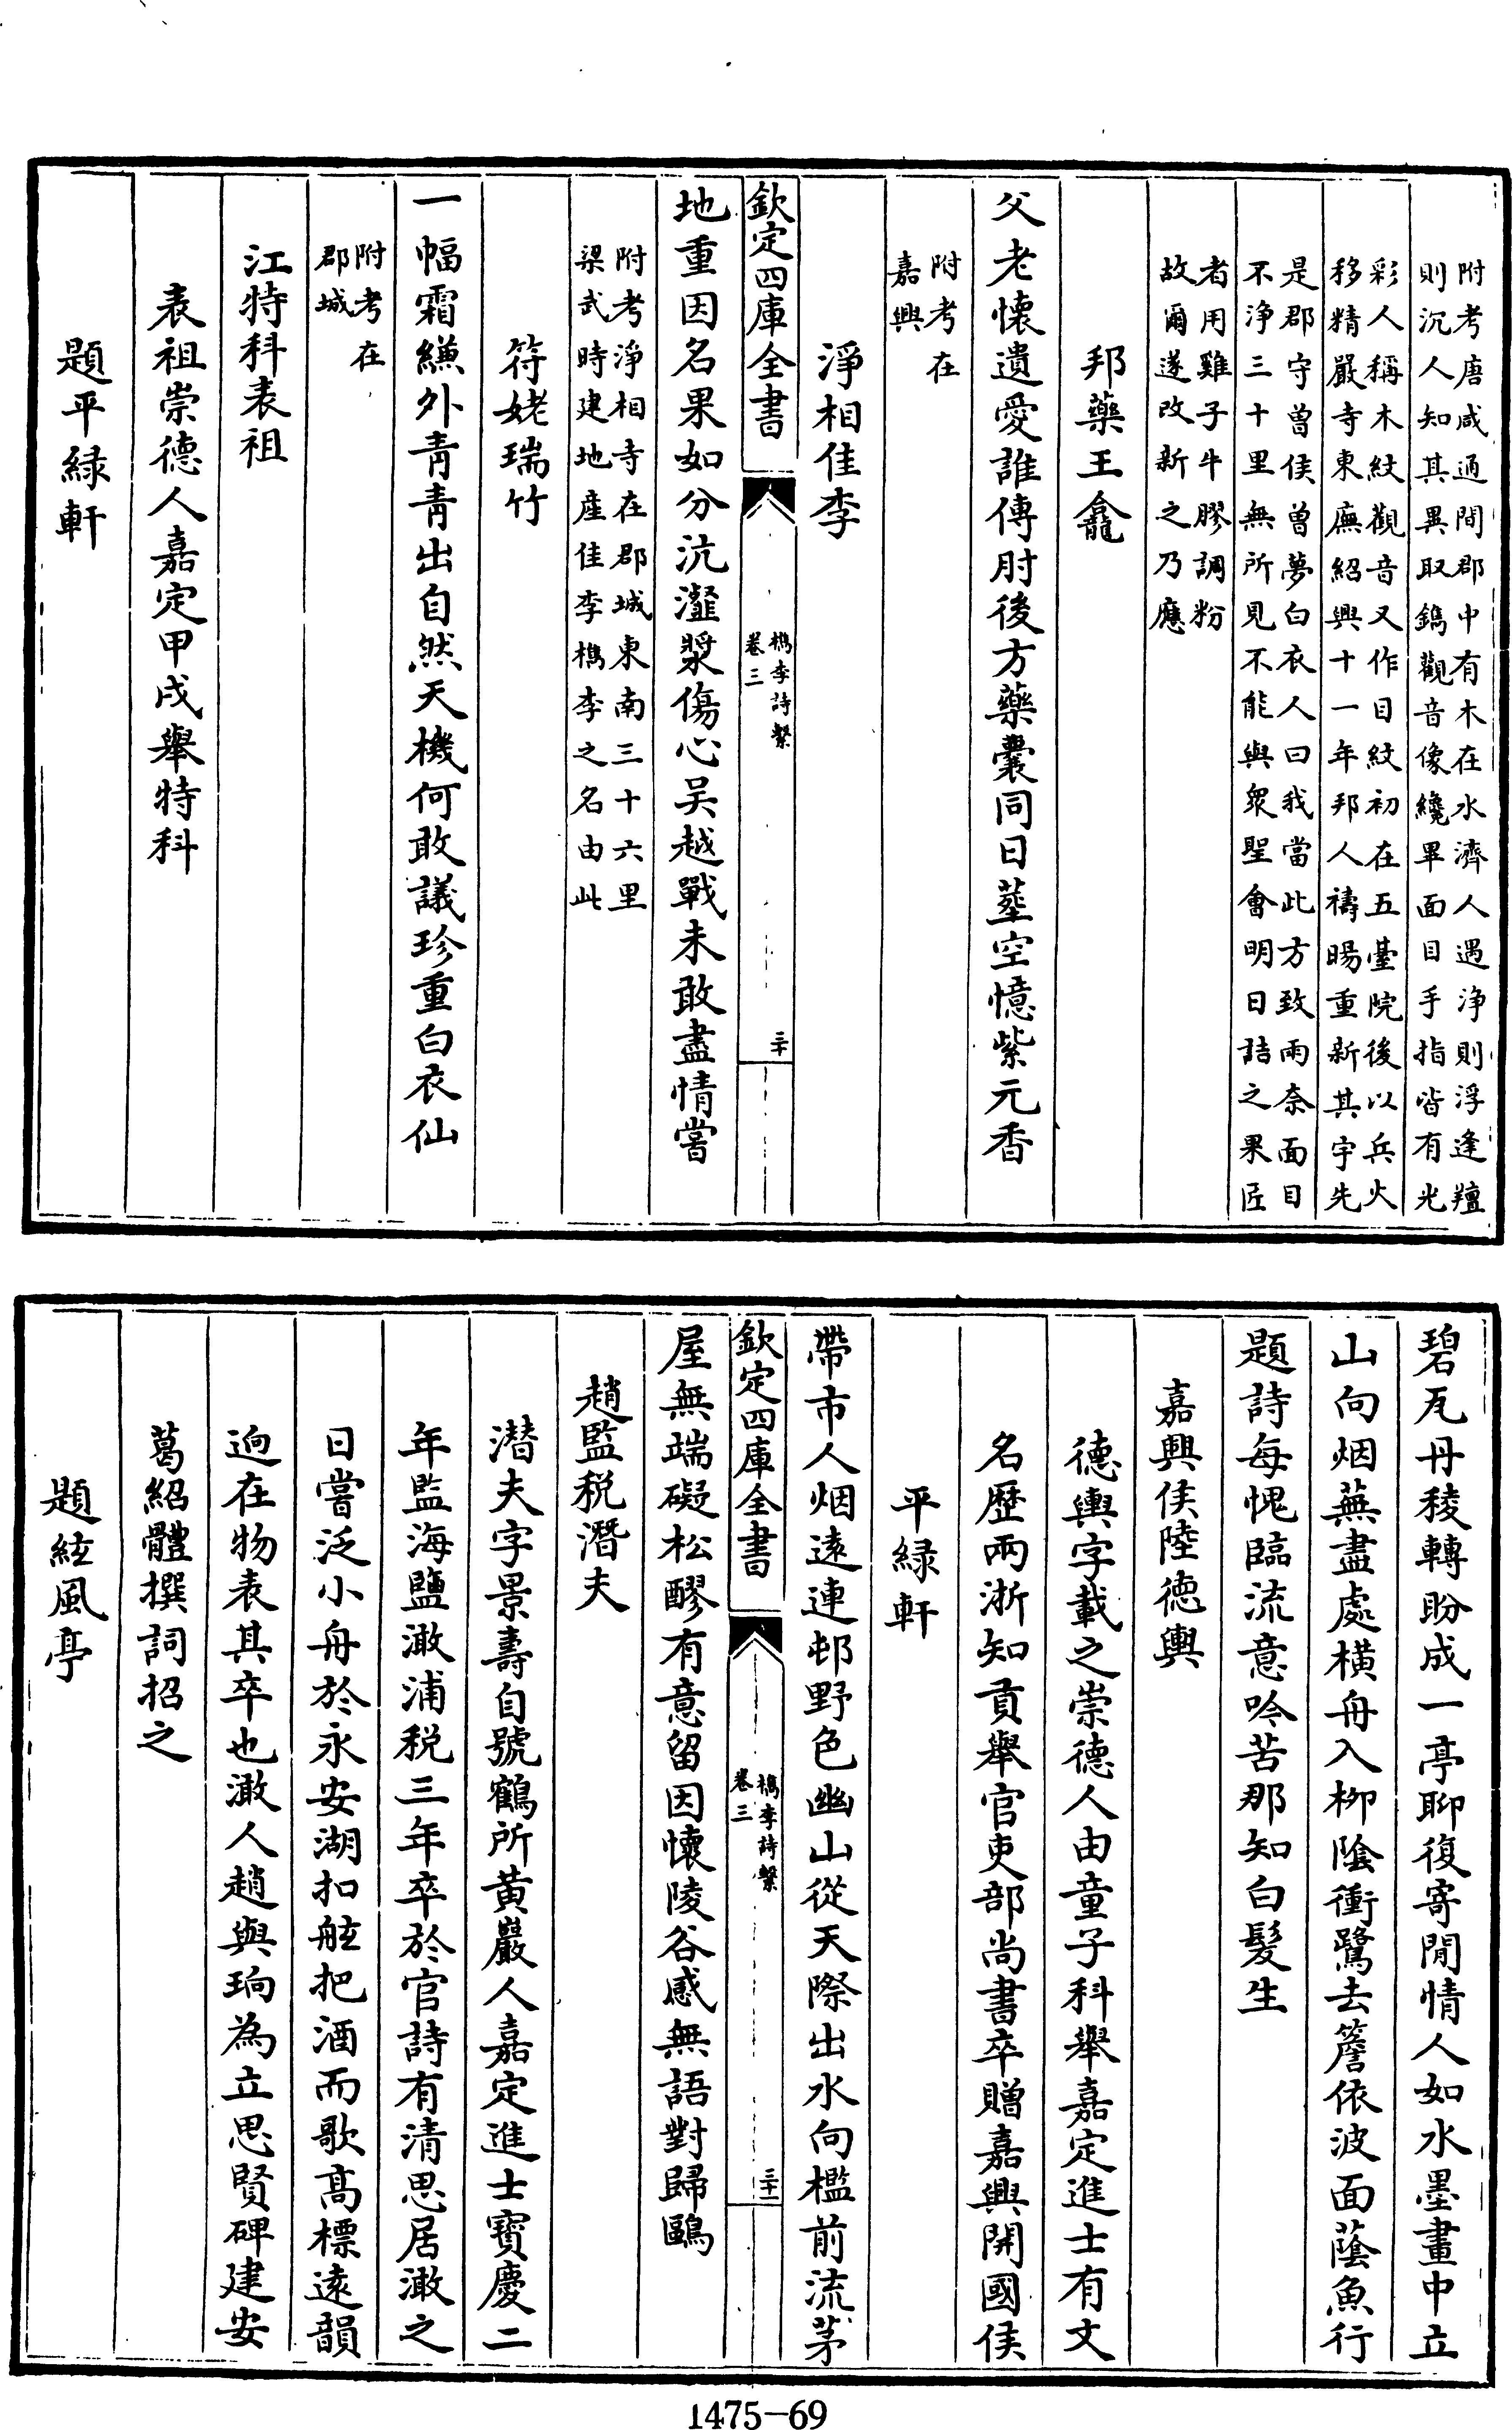 附考唐咸通間郡中有木在水濟人遇浄則浮逢羶
則沉人知其異取鐫觀音像纔畢面目手指皆有光
彩人稱木紋觀音又作目紋初在五臺院後以兵火
移精嚴寺東廡紹興十一年邦人禱暘重新其宇先
是郡守曽侯曽夢白衣人曰我當此方致雨奈面目
不浄三十里無所見不能與衆聖會明日詰之果匠
者用雞子牛膠調粉
故爾遂改新之乃應
邦藥王龕
父老懷遺愛誰傳肘後方藥囊同日塟空憶紫元香
附考在
嘉興
淨相佳李
欽定四庫全書
檇李詩繫
卷三
三十
地重因名果如分沆瀣漿傷心吴越戰未敢盡情嘗
附考淨相寺在郡城東南三十六里
梁武時建地產佳李檇李之名由此
符姥瑞竹
一幅霜縑外青青出自然天機何敢議珍重白衣仙
附考在
郡城
江特科表祖
表祖崇德人嘉定甲戌舉特科
題平緑軒
碧瓦丹稜轉盼成一亭聊復寄閒情人如水墨畫中立
山向烟蕪盡處横舟入栁陰衝鷺去簷依波面蔭魚行
題詩每愧臨流意吟苦那知白髮生
嘉興侯陸德輿
德輿字載之崇德人由童子科舉嘉定進士有文
名歴兩浙知貢舉官吏部尚書卒贈嘉興開國侯
平緑軒
帶市人烟逺連邨野色幽山從天際出水向檻前流茅
欽定四庫全書
檇李詩繫
卷三
三十一
屋無端礙松醪有意留因懷陵谷感無語對歸鷗
趙監税潛夫
潜夫字景壽自號鶴所黄巖人嘉定進士寳慶二
年監海鹽澉浦税三年卒於官詩有清思居澉之
日嘗泛小舟於永安湖扣舷把酒而歌髙標逺韻
逈在物表其卒也澉人趙與珦為立思賢碑建安
葛紹體撰詞招之
題紘風亭